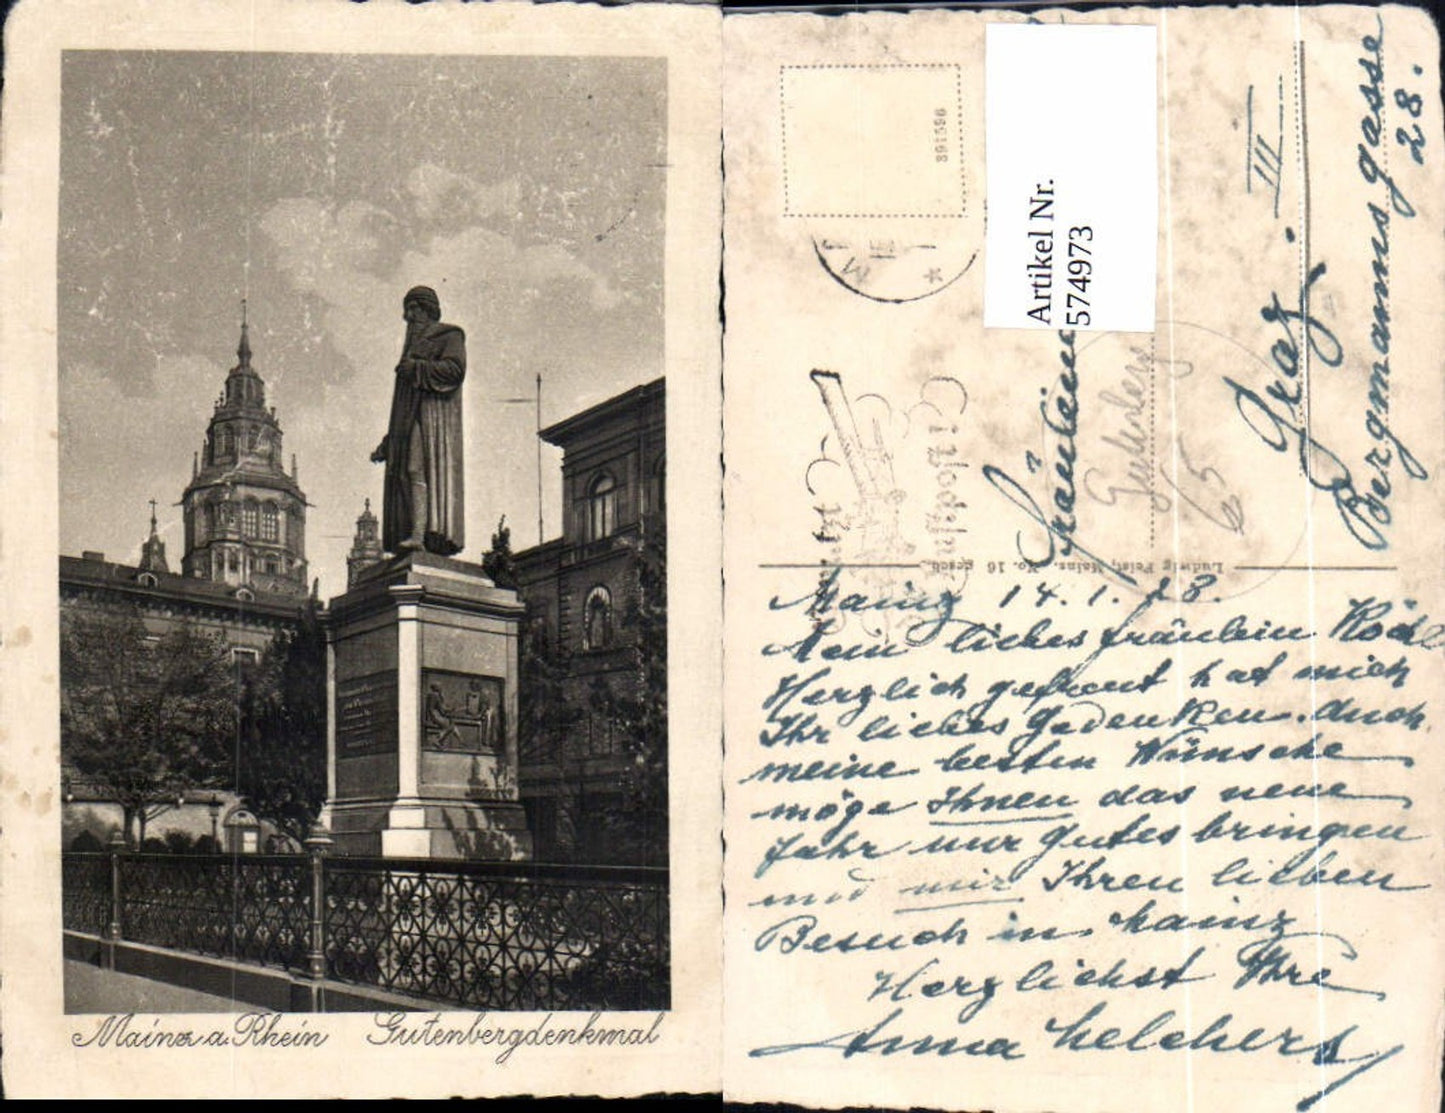 Mainz a. Rhein Gutenbergdenkmal
891596
Artikel Nr.
574973
Fräulein
Graz. III
Bergmanns gasse
28.
Gutenberg
65
Ludwig Feist, Mainz. No. 16 gesch.
Mainz 14. 1. 28.
Mein liebes Fräulein Köchl
Herzlich gefreut hat mich
Ihr liebes Gedenken. Auch
meine besten Wünsche
möge Ihnen das neue
Jahr nur Gutes bringen
und mir Ihren lieben
Besuch in Mainz
Herzlichst Ihre
Anna Melchers